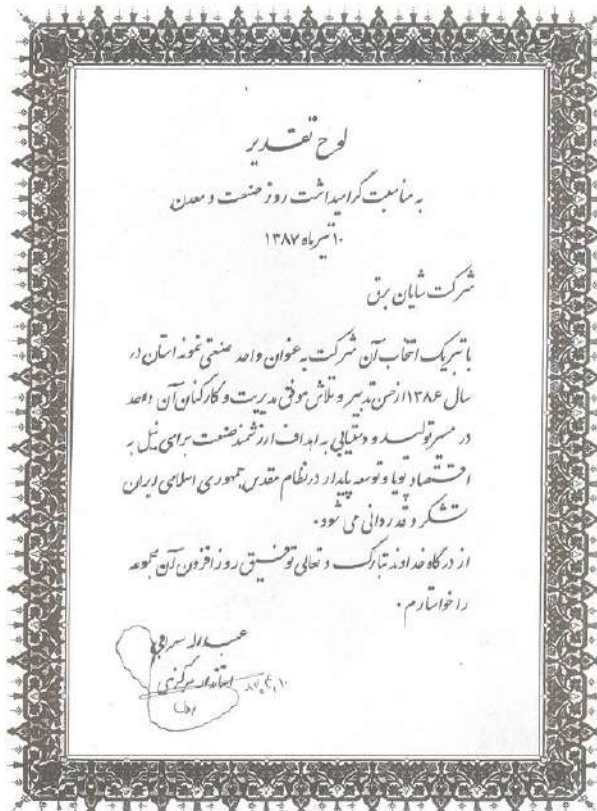 لوح تقدیر
به مناسبت گرامیداشت روز صنعت و معدن
۱۰ تیرماه ۱۳۸۷
شرکت شایان برق
با تبریک انتخاب آن شرکت به عنوان واحد صنعتی نمونه استان در
سال ۱۳۸۶ از حسن تدبیر و تلاش موفق مدیریت و کارکنان آن واحد
در مسیر تولید و دستیابی به اهداف ارزشمند صنعت برای نیل به
اقتصاد پویا و توسعه پایدار در نظام مقدس جمهوری اسلامی ایران
تشکر و قدردانی می شود.
از درگاه خداوند تبارک و تعالی توفیق روز افزون آن مجموعه
را خواستارم.
استاندار مرکزی